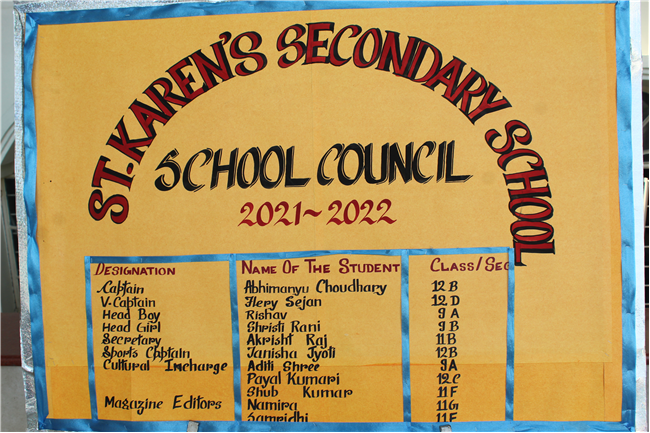 ST. KAREN'S SECONDARY SCHOOL
SCHOOL COUNCIL
2021~2022
DESIGNATION NAME OF THE STUDENT CLASS/SEC
Captain Abhimanyu Choudhary 12 B
V. Captain Flery Sejan 12 D
Head Boy Rishav 9 A
Head Girl Shristi Rani 9 B
Secretary Akrisht Raj 11 B
Sport's Cpptain Tanisha Jyoti 12 B
Cultural Imcharge Aditi Shree 9 A
Payal Kumari 12 C
Shub Kumar 11 F
Magazine Editors Namira 11 G
Samridhi 11 F